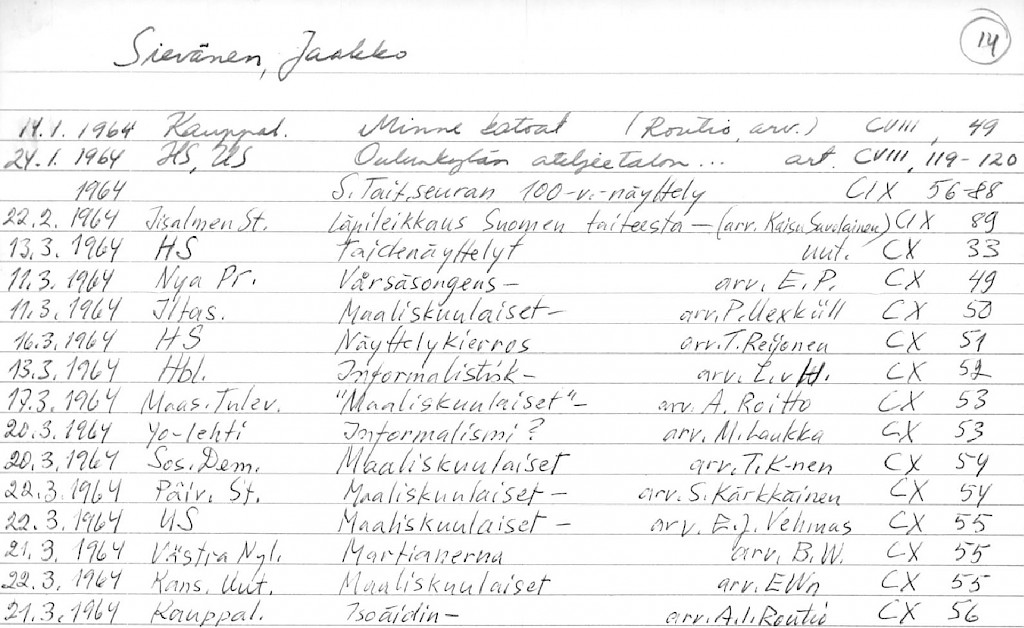 Sievänen, Jaakko
14
14.1. 1964 Kauppal. Minne katoat (Routio, arv.) CVIII, 49
24.1. 1964 HS, US Oulunkylän ateljeetalon... art. CVIII, 119-120
1964 S. Tait.seuran 100-v.-näyttely CIX 56-88
22.2. 1964 Iisalmen St. Läpileikkaus Suomen taiteesta - (arv. Kaisu Savolainen) CIX 89
13.3. 1964 HS Taidenäyttelyt uut. CX 33
11.3. 1964 Nya Pr. Vårsäsongens - arv. E.P. CX 49
11.3. 1964 Iltas. Maaliskuulaiset - arv. P. Uexküll CX 50
16.3. 1964 HS Näyttelykierros arv. T. Reijonen CX 51
13.3. 1964 Hbl. Informalistisk - arv. E.v H. CX 52
17.3. 1964 Maas. Tulev. "Maaliskuulaiset" - arv. A. Roitto CX 53
20.3. 1964 Yo-lehti Informalismi? arv. M. Laukka CX 53
20.3. 1964 Sos. Dem. Maaliskuulaiset arv. T. K-nen CX 54
22.3. 1964 Päiv. St. Maaliskuulaiset - arv. S. Kärkkäinen CX 54
22.3. 1964 US Maaliskuulaiset - arv. E.J. Vehmas CX 55
21.3. 1964 Västra Nyl. Martianerna arv. B.W. CX 55
22.3. 1964 Kans. Uut. Maaliskuulaiset arv. EWn CX 55
21.3. 1964 Kauppal. Isoäidin - arv. A.I. Routio CX 56